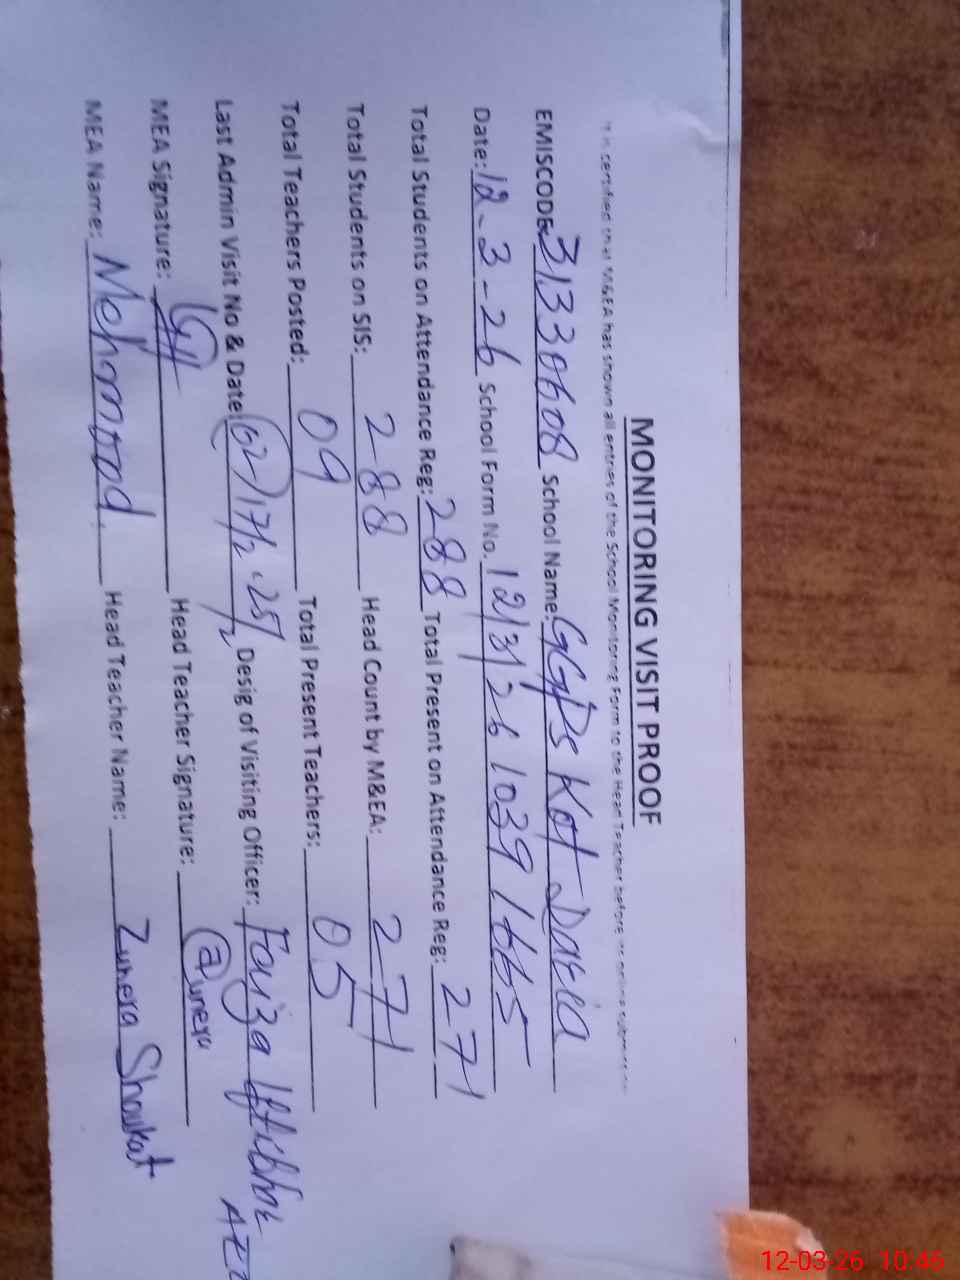 MONITORING VISIT PROOF
It is certified that M&EA has shown all entries of the School Monitoring Form to the Head Teacher before its online submission
EMISCODE: 31330608 School Name: GGPS Kot Daela
Date: 12-3-26 School Form No. 12/3/26 1039 1665
Total Students on Attendance Reg: 288 Total Present on Attendance Reg: 271
Total Students on SIS: 288 Head Count by M&EA: 271
Total Teachers Posted: 09 Total Present Teachers: 05
Last Admin Visit No & Date: (62) 17/12-25 Desig of Visiting Officer: Faiza Iftikhar
MEA Signature: Head Teacher Signature: @unera
MEA Name: Mehmood. Head Teacher Name: Zunera Shoukat
12-03-26 10:46